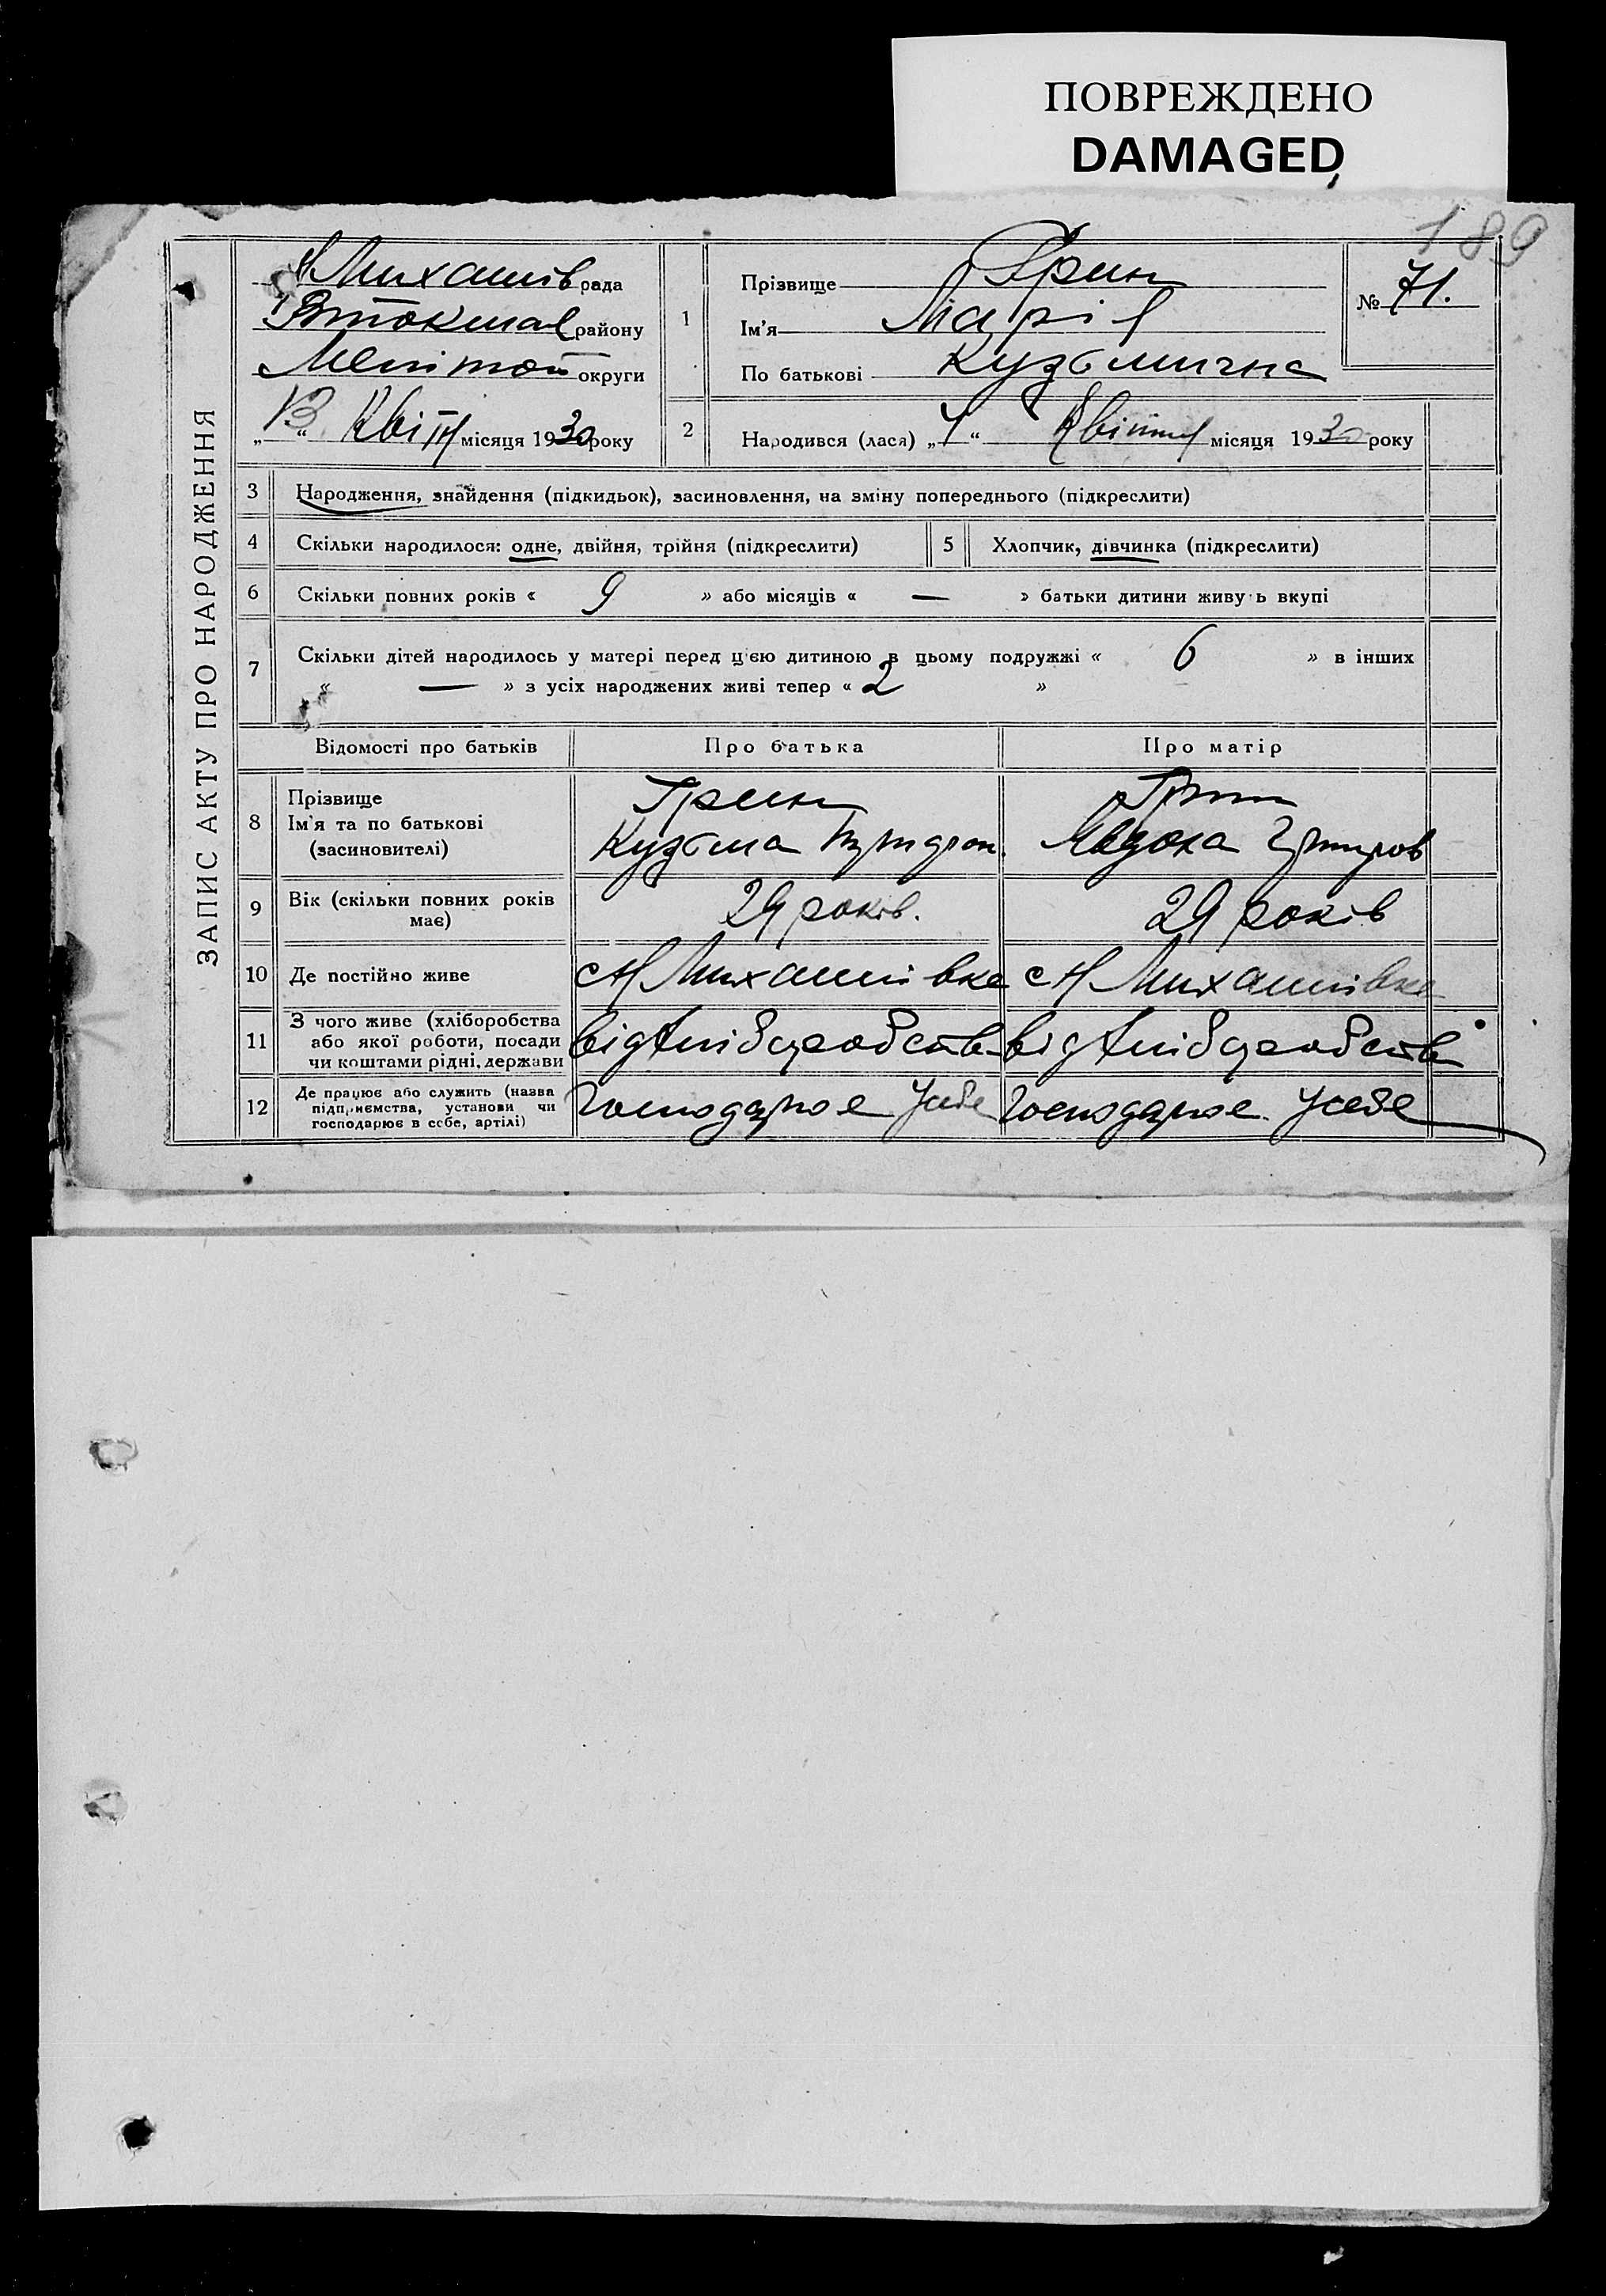 ПОВРЕЖДЕНО
DAMAGED
189
ЗАПИС АКТУ ПРО НАРОДЖЕННЯ
Михайлів рада
району
округи
„13“ Квітня місяця 1930 року
1 Прізвище Грин
Ім'я Марія
По батькові Кузьмична
№ 71.
2 Народився (лася) „ “ Квітня місяця 1930 року
3 Народження, знайдення (підкидьок), засиновлення, на зміну попереднього (підкреслити)
4 Скільки народилося: одне, двійня, трійня (підкреслити)
5 Хлопчик, дівчинка (підкреслити)
6 Скільки повних років « 9 » або місяців « — » батьки дитини живуть вкупі
7 Скільки дітей народилось у матері перед цією дитиною в цьому подружжі « 6 » в інших
« — » з усіх народжених живі тепер « 2 »
Відомості про батьків Про батька Про матір
8 Прізвище
Ім'я та по батькові
(засиновителі)
Грин
Кузьма
Грин
Явдоха
9 Вік (скільки повних років
має)
29 років.
29 років
10 Де постійно живе
с Н Михайлівке
с Н Михайлівке
11 З чого живе (хліборобства
або якої роботи, посади
чи коштами рідні, держави
від хліборобства
від хліборобства
12 Де працює або служить (назва
підприємства, установи чи
господарює в себе, артілі)
Господарює Усебе
Господарює Усебе